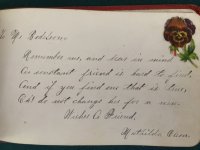 To M.
Remember me, and bear in mind
A constant friend is hard to find,
And if you find one that is true,
Do not change her for a new.
Wishes a Friend.
Mathilda